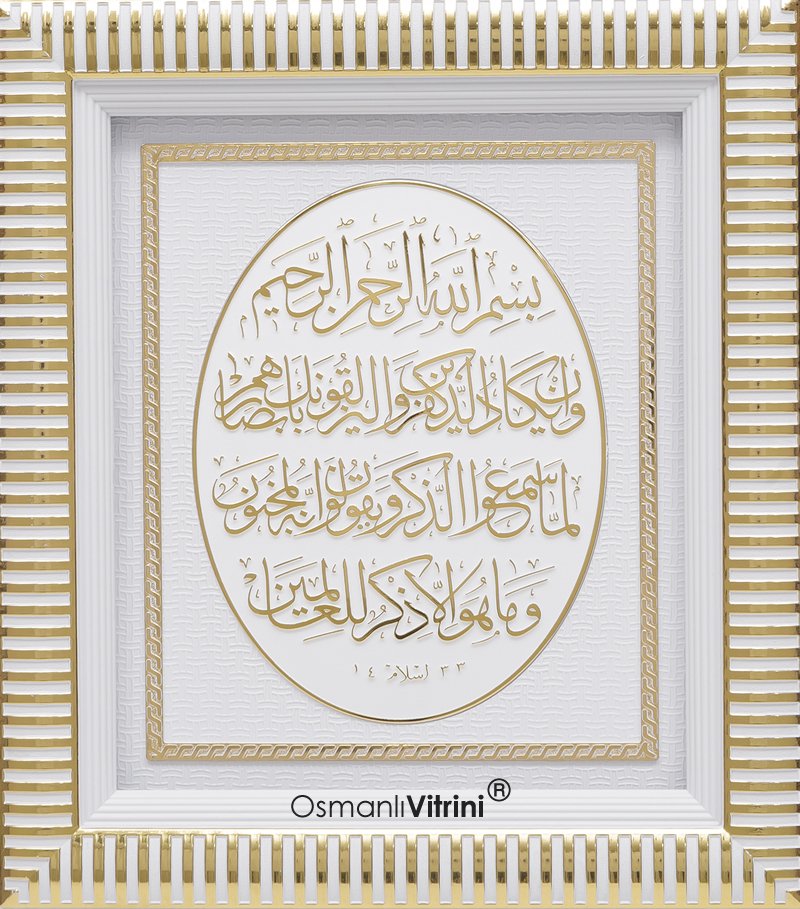 بِسْمِ اللهِ الرَّحْمٰنِ الرَّحِيمِ
وَاِنْ يَكَادُ الَّذِينَ كَفَرُوا لَيُزْلِقُونَكَ بِاَبْصَارِهِمْ
لَمَّا سَمِعُوا الذِّكْرَ وَيَقُولُونَ اِنَّهُ لَمَجْنُونٌ
وَمَا هُوَ اِلَّا ذِكْرٌ لِلْعَالَمِينَ
١٤ اسلام ٣٣
OsmanlıVitrini®